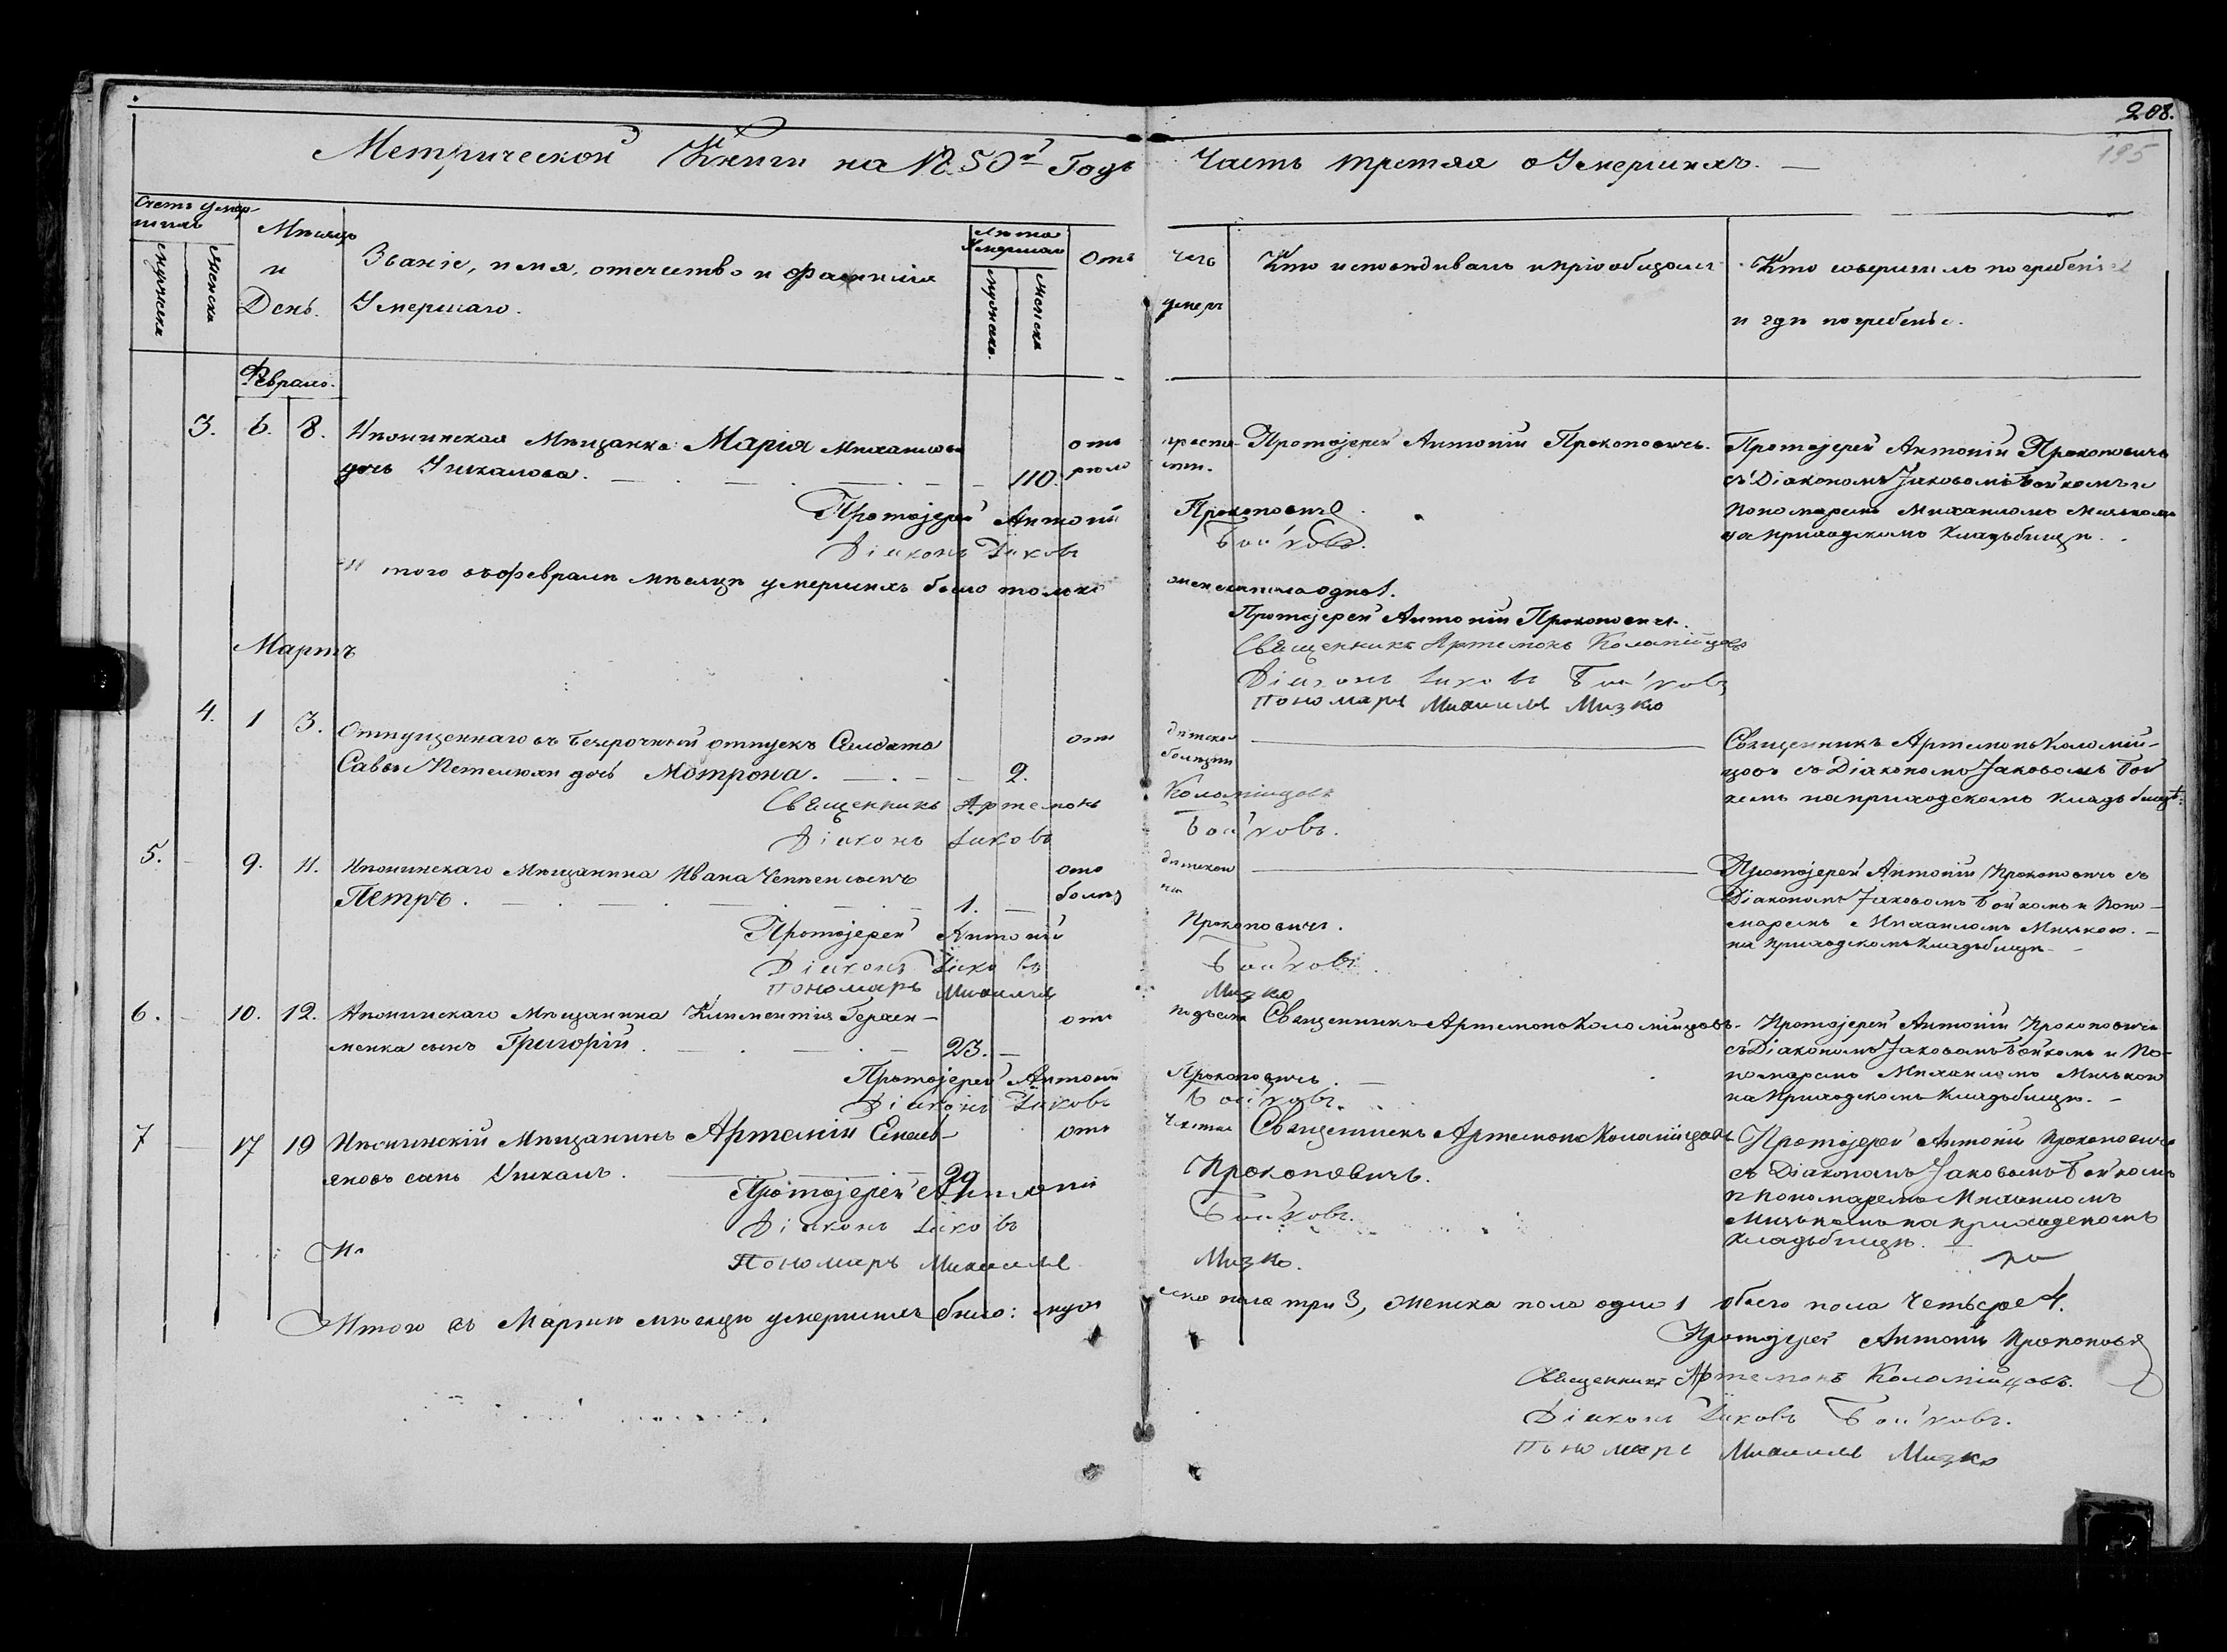 208.
195
Метрической Книги на 1850й Годъ Часть третяя о Умершихъ.
Счетъ умершихъ
Мѣсяцъ и День.
Званіе, имя, отечество и фамилія Умершаго.
Лѣта Умершаго
Отъ чего умеръ
Кто исповѣдивалъ и пріобщалъ
Кто совершилъ погребеніе и гдѣ погребены.
мужеска
женска
мужеска.
женска
Февраль.
3. 6. 8. мѣщанка Марія Михаилова отъ старости. Протоіерей Антоній Прокоповичъ. Протоіерей Антоній Прокоповичъ
дочь 110. съ Діакономъ Іаковомъ Бойкомъ и
Протоіерей Антоній Прокоповичъ. Пономаремъ Михаиломъ
Діаконъ Іаковъ Бойковъ. на приходскомъ кладьбищѣ.
Итого въ февралѣ мѣсяцѣ умершихъ было только женска пола одна 1.
Протоіерей Антоній Прокоповичъ.
Священникъ Артемонъ Коломійцовъ
Діаконъ Іаковъ Бойковъ
Пономарь Михаилъ Мизко
Мартъ
4. 1 3. Отпущеннаго въ безсрочный отпускъ Солдата отъ дѣтской Священникъ Артемонъ Коломій-
Савы дочь Мотрона. 2. болѣзни цовъ съ Діакономъ Іаковомъ Бой
Священникъ Артемонъ Коломійцовъ комъ на приходскомъ кладьбищѣ.
Діаконъ Іаковъ Бойковъ.
5. 9. 11. мѣщанина Ивана сынъ отъ дѣтской Протоіерей Антоній Прокоповичъ съ
Петръ. 1. болѣзни Діакономъ Іаковомъ Бойкомъ и Поно-
Протоіерей Антоній Прокоповичъ. маремъ Михаиломъ Мизькою.
Діаконъ Іаковъ Бойковъ на приходскомъ кладьбищѣ
Пономарь Михаилъ Мизко
6. 10. 12. мѣщанина Климентія Герасименка отъ Священникъ Артемонъ Коломійцовъ. Протоіерей Антоній Прокоповичъ
сынъ Григорій. 23. съ Діакономъ Іаковомъ Бойкомъ и По-
Протоіерей Антоній Прокоповичъ. номаремъ Михаиломъ Мизькою
Діаконъ Іаковъ Бойковъ. на приходскомъ кладьбищѣ.
7 17 19 мѣщанинъ Артемій отъ Священникъ Артемонъ Коломійцовъ Протоіерей Антоній Прокоповичъ
сынъ 29 съ Діакономъ Іаковомъ Бойкомъ
Протоіерей Антоній Прокоповичъ. и Пономаремъ Михаиломъ
Діаконъ Іаковъ Бойковъ. на приходскомъ
Пономарь Михаилъ Мизко. кладьбищѣ.
Итого въ Мартѣ мѣсяцѣ умершихъ было: мужеска пола три 3, женска пола одна 1 обоего пола четыре 4.
Протоіерей Антоній Прокоповичъ
Священникъ Артемонъ Коломійцовъ.
Діаконъ Іаковъ Бойковъ.
Пономарь Михаилъ Мизко